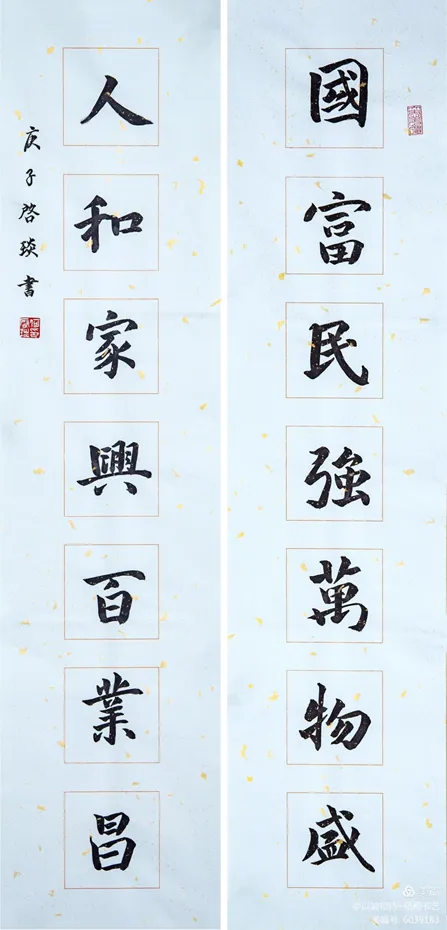 國富民強萬物盛
人和家興百業昌
庚子啓琰書